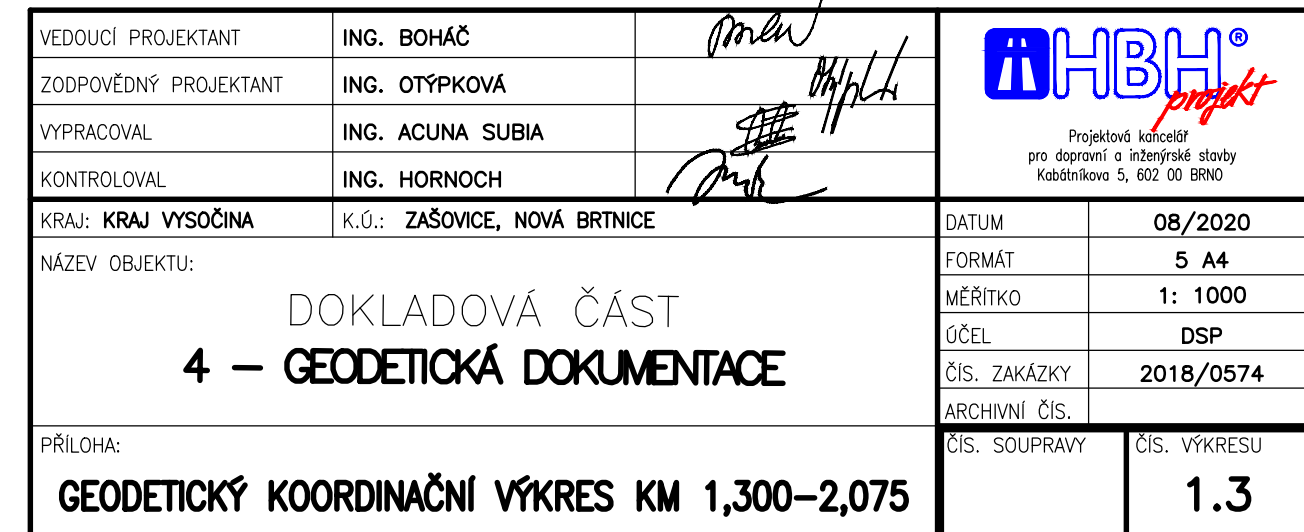 VEDOUCÍ PROJEKTANT ING. BOHÁČ
ZODPOVĚDNÝ PROJEKTANT ING. OTÝPKOVÁ
VYPRACOVAL ING. ACUNA SUBIA
KONTROLOVAL ING. HORNOCH
HBH®
projekt
Projektová kancelář
pro dopravní a inženýrské stavby
Kabátníkova 5, 602 00 BRNO
KRAJ: KRAJ VYSOČINA K.Ú.: ZAŠOVICE, NOVÁ BRTNICE
NÁZEV OBJEKTU:
DOKLADOVÁ ČÁST
4 – GEODETICKÁ DOKUMENTACE
DATUM 08/2020
FORMÁT 5 A4
MĚŘÍTKO 1: 1000
ÚČEL DSP
ČÍS. ZAKÁZKY 2018/0574
ARCHIVNÍ ČÍS.
PŘÍLOHA:
GEODETICKÝ KOORDINAČNÍ VÝKRES KM 1,300–2,075
ČÍS. SOUPRAVY
ČÍS. VÝKRESU
1.3